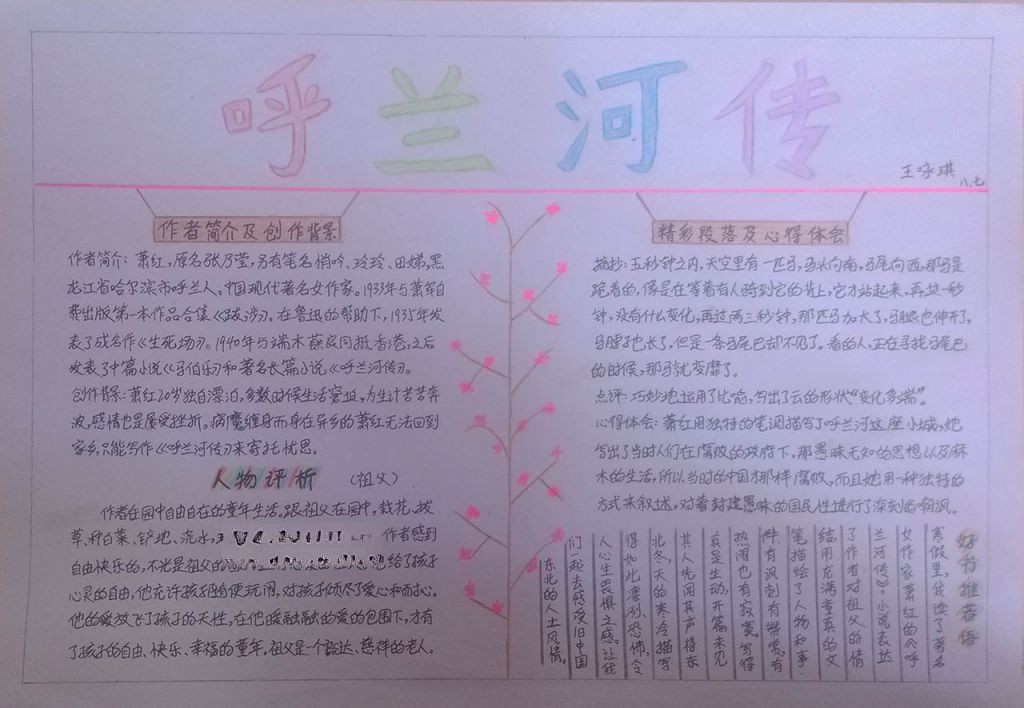 呼兰河传
王咏琪
八.七
作者简介及创作背景
作者简介: 萧红,原名张乃莹,另有笔名悄吟、玲玲、田娣,黑
龙江省哈尔滨市呼兰人。中国现代著名女作家。1933年与萧军自
费出版第一本作品合集《跋涉》。在鲁迅的帮助下,1935年发
表了成名作《生死场》。1940年与端木蕻良同抵香港,之后
发表了中篇小说《马伯乐》和著名长篇小说《呼兰河传》。
创作背景:萧红20岁独自漂泊,多数时候生活窘迫,为生计苦苦奔
波,感情也是屡受挫折。病魔缠身而身在异乡的萧红无法回到
家乡,只能写作《呼兰河传》来寄托忧思。
人物评析 (祖父)
作者在园中自由自在的童年生活,跟祖父在园中,栽花、拔
草、种白菜、铲地、浇水, 作者感到
自由快乐的,不光是祖父的 他给了孩子
心灵的自由,他允许孩子随便玩闹,对孩子倾尽了爱心和耐心。
他的爱放飞了孩子的天性,在他暖融融的爱的包围下,才有
了孩子的自由、快乐、幸福的童年,祖父是个豁达、慈祥的老人。
精彩段落及心得体会
摘抄:五秒钟之内,天空里有一匹马,马头向南,马尾向西,那马是
跪着的,像是在等着有人骑到它的背上,它才站起来,再过一秒
钟,没有什么变化,再过两三秒钟,那匹马加大了,马腿也伸开了,
马脖子也长了,但是一条马尾巴却不见了。看的人,正在寻找马尾巴
的时候,那马就变靡了。
点评:巧妙地运用了比喻,写出了云的形状“变化多端”。
心得体会:萧红用独特的笔调描写了呼兰河这座小城,她
写出了当时人们在腐败的政府下,那愚昧无知的思想以及麻
木的生活,所以当时的中国才那样腐败,而且她用一种独特的
方式来叙述,对着封建愚昧的国民性进行了深刻的嘲讽。
好书推荐语
寒假里,我读了著名
女作家萧红的《呼
兰河传》,小说表达
了作者对祖父的情
结,用充满童真的文
笔描绘了人物和事
件,有讽刺有赞赏,有
热闹也有寂寞。写得
真是生动,开篇未见
其人先闻其声,将东
北冬天的寒冷描写
得如此凛冽、恐怖,令
人心生畏惧之感。让我
们一起去感受旧中国
东北的人土风情。